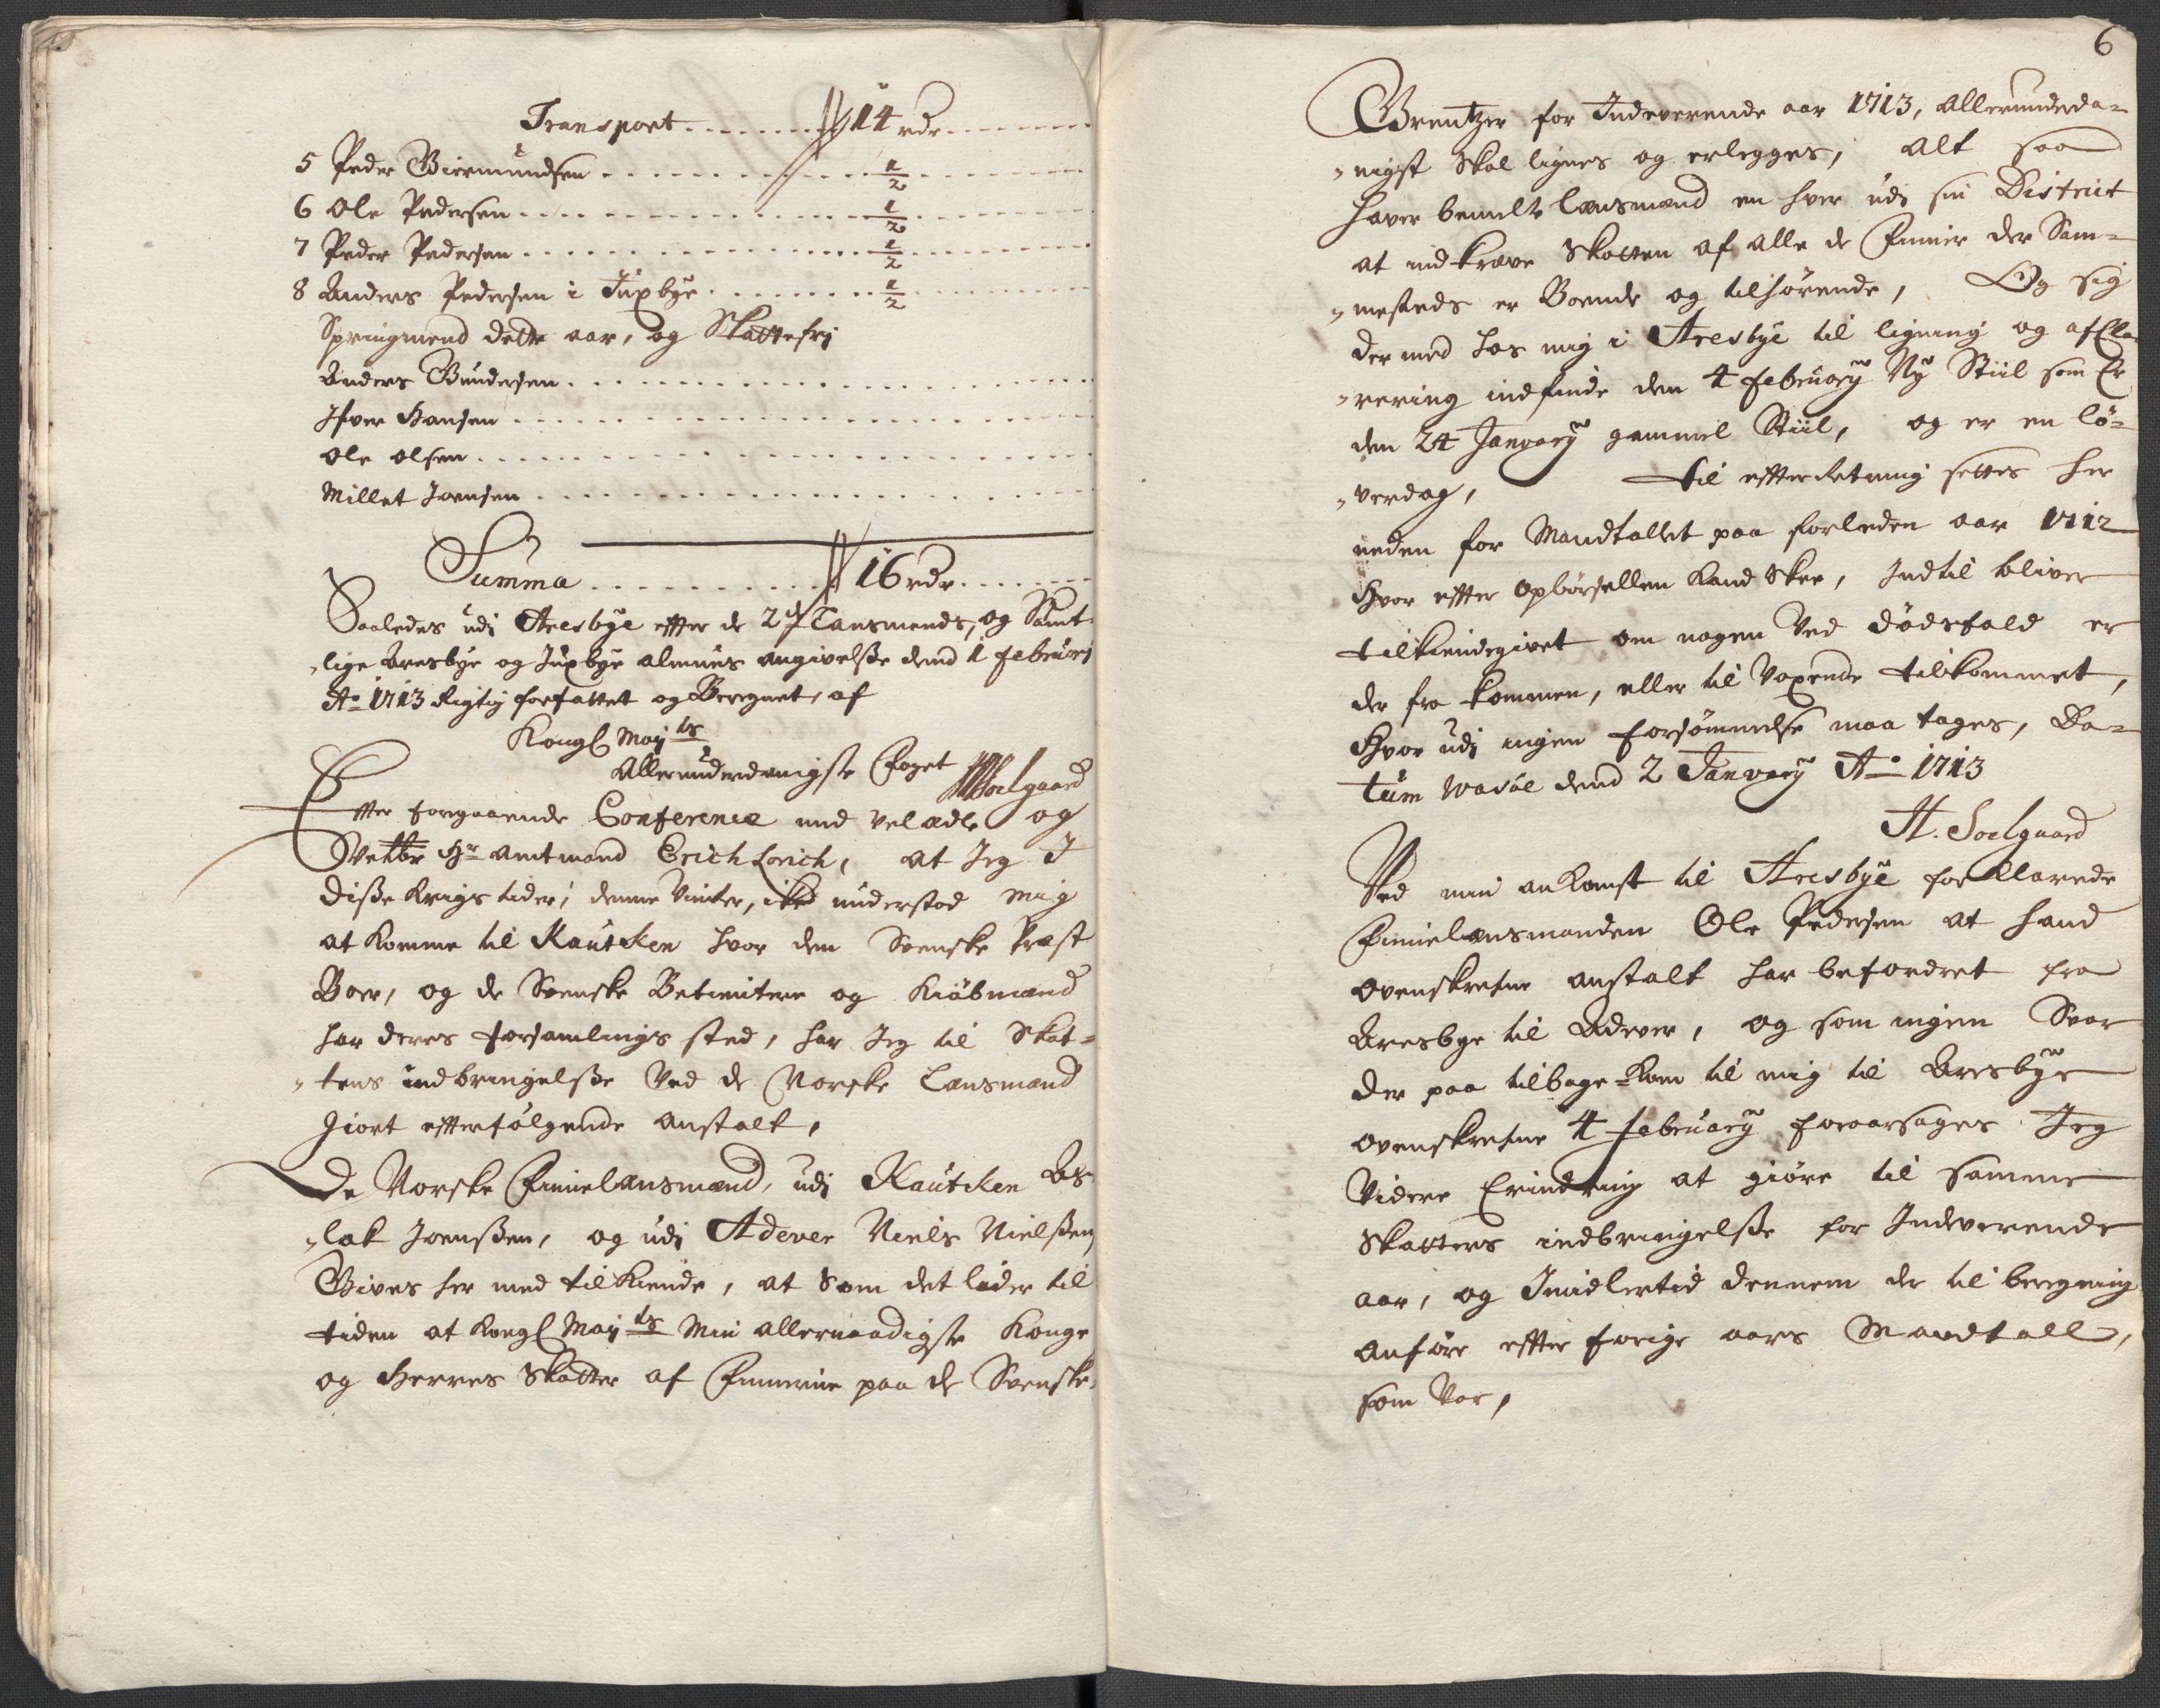 Transport . . . . . . . 14 rdr . . . . . .
5 Peder Giermundsen . . . . . . . . . 1/2
6 Ole Pedersen . . . . . . . . . 1/2
7 Peder Pedersen . . . . . . . . . 1/2
8 Anders Pedersen i Juxbÿe . . . . . . . . 1/2
Springmend dette aar, og Skattefrj
Anders Gundersen . . . . . . . . .
Ifver Hansen . . . . . . . . .
Ole Olsen . . . . . . . . .
Millet Joensen . . . . . . . . .
Summa . . . . . . . . . . 16 rdr . . . . . .
Saaledes udj Aresbÿe effter de 2de Lænsmends, og Samt-
lige Aresbÿe og Juxbÿe almues angivelsse dend 1 Februarj
Ao 1713 Rigtig forfattet og Beregnet, af
Kongl Maÿ ts
Allerunderdanigste Foget Soelgaard
Effter foregaaende Conference med velædle og
Welbr Hr Amtmand Erich Lorich, at Jeg I
disse Krigs tider, denne Vinter, ike understod mig
at komme til Kautcken hvor den Svenske Præst
Boer, og de Svenske Betienter og Kiøbmænd
har deres forsamlings sted, har Jeg til Skat-
tens indbringelsse Ved de Norske Lænsmænd
giort effterfølgende anstalt,
De Norske Finnelænsmænd, udj Kautcken As-
lak Joenssen, og udj Adever Niels Nielssen
Gives her med tilkiende, at som det lider til
tiden at Kongl Maÿ ts Min allernaadigste Konge
og Herres Skatter af Finnerne paa de Svenske
6
Grentzer for Indeverende aar 1713, allerunderda-
nigst skal lignes og erlegges, Alt saa
haver bemelte lænsmænd en hver udj sin District
at indkræve Skatten af alle de Finner der Sam-
mesteds er Boende og tilhørende, Og sig
der med hos mig i Aresbÿe til ligning og afCla-
rering indfinde den 4 Februarÿ Nÿ Stiil som Er
den 24 Januarÿ gammel Stiil, og er en Lø-
verdag, til effterRetning settes her
neden for Mandtallet paa forleden aar 1712
Hvor effter opbørsellen kand Skee, Indtil bliver
tilkiendegivet om nogen Ved dødsfald er
der fra kommen, eller til Voxende tilkommet,
Hvor udj ingen forsømmelse maa tages, Da-
tum Wasöe dend 2 Januarÿ Ao 1713
H. Soelgaard
Ved min ankomst til Aresbÿe forklarede
Finnelænsmanden Ole Pedersen at hand
ovenskrefne anstalt har befordret fra
Aresbye til Adever, og som ingen Svar
der paa tilbage-kom til mig til Aresbÿe
ovenskrefne 4 Februarÿ foraarsages Jeg
Videre Erindring at giøre til samme
Skatters indbringelsse for Indeverende
aar, og Imidlertid dennem der til beregning
anføre effter forige aars Mandtall,
som Var,